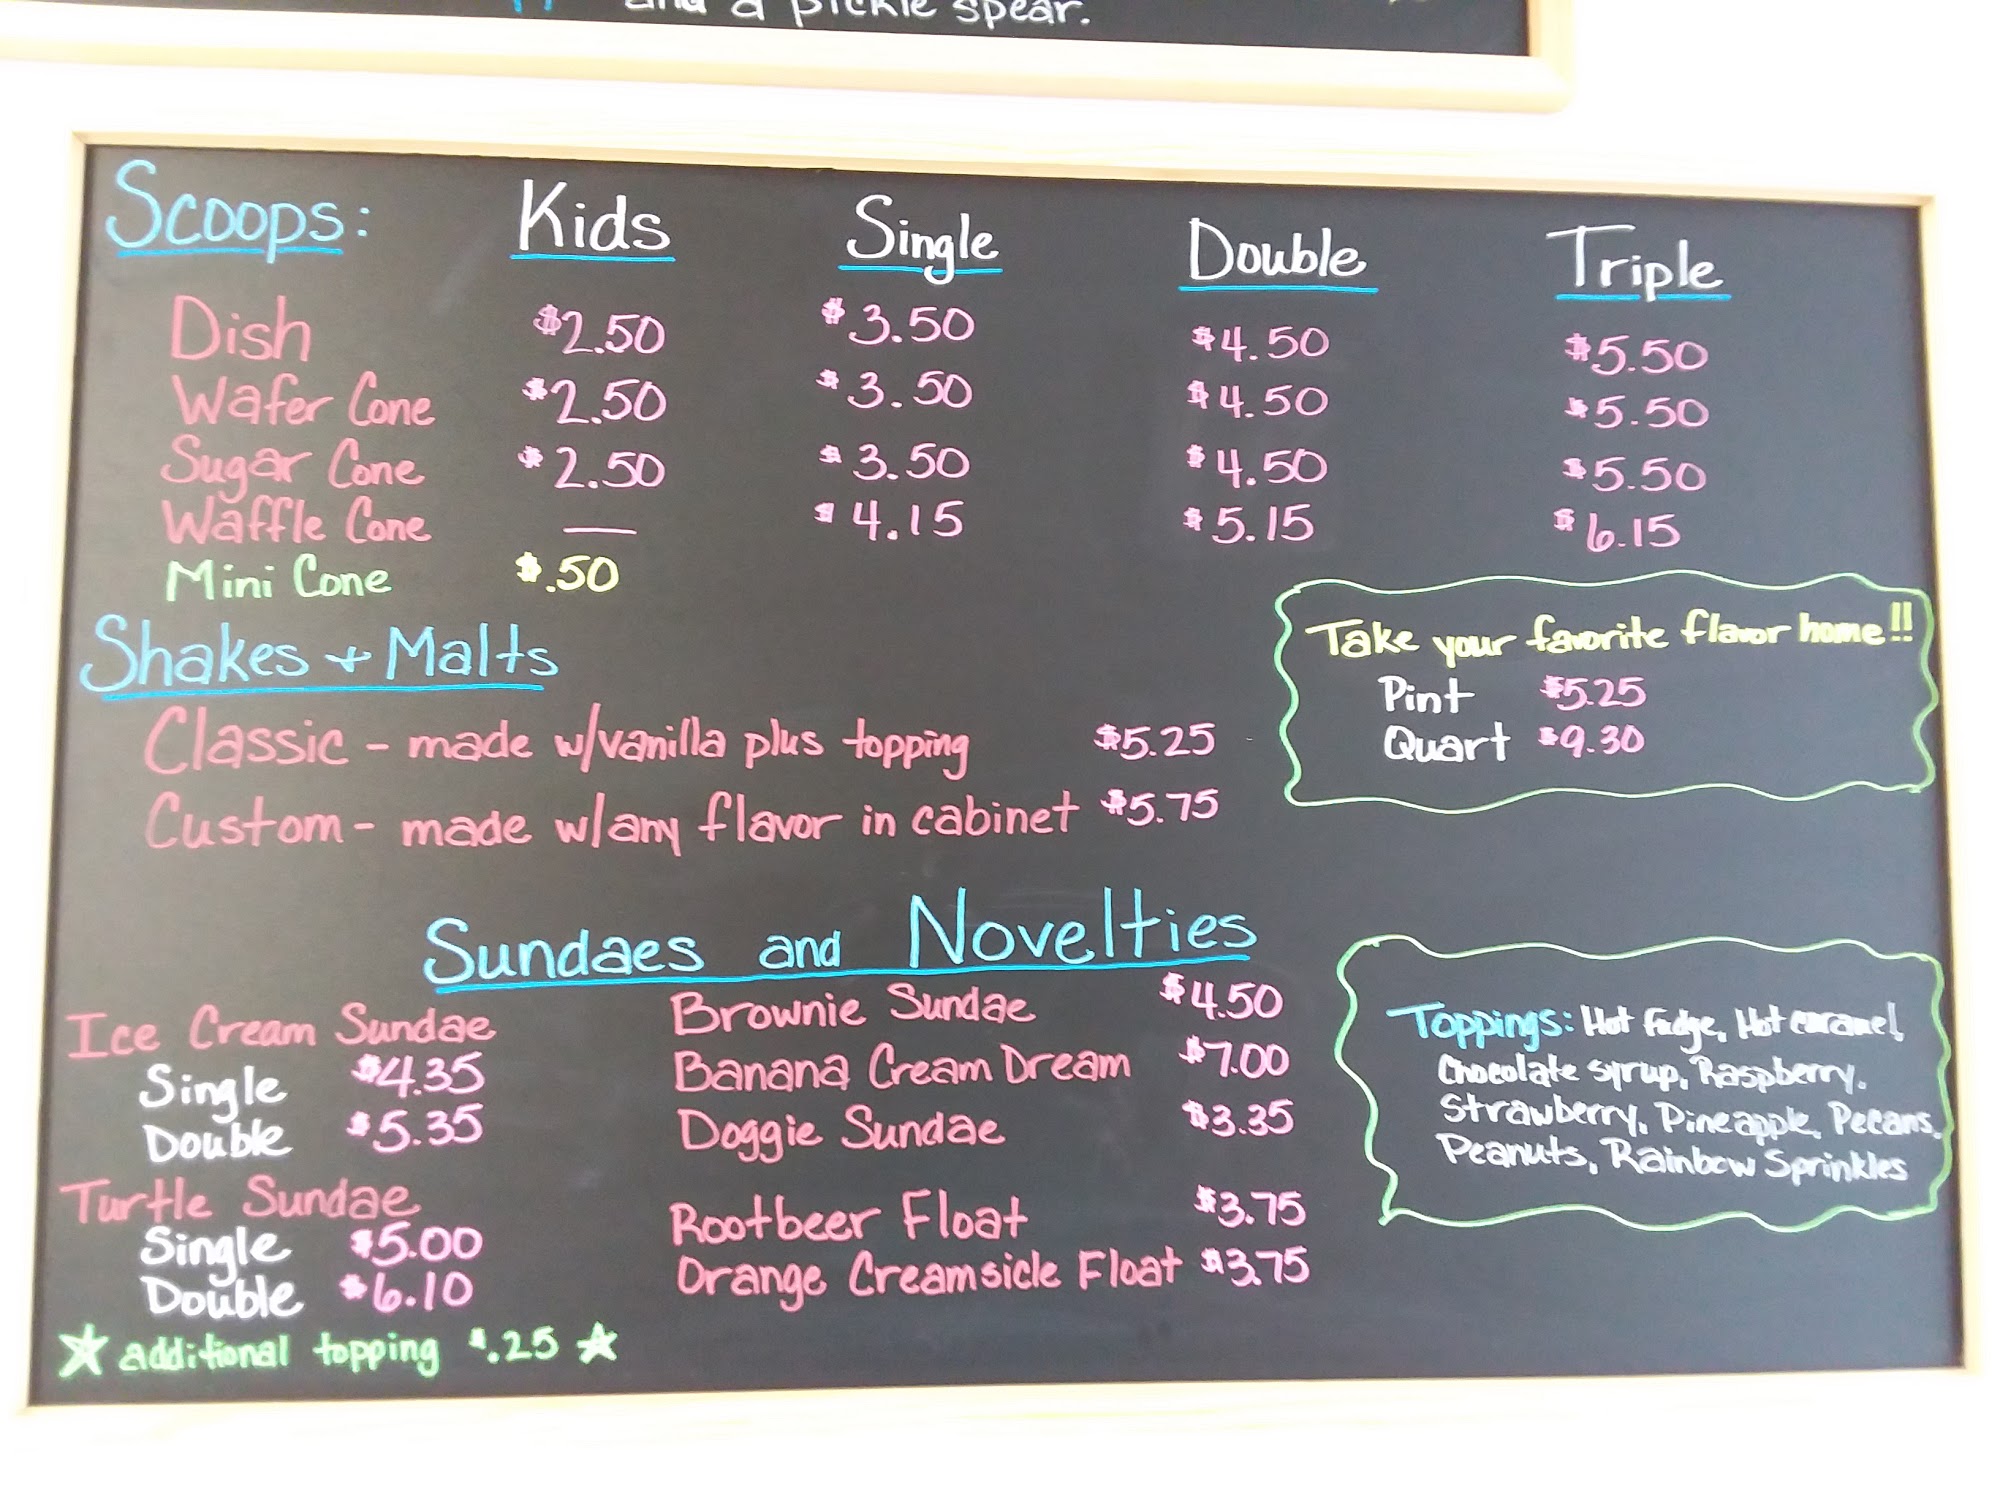 and a pickle spear.
Scoops: Kids Single Double Triple
Dish $2.50 $3.50 $4.50 $5.50
Wafer Cone $2.50 $3.50 $4.50 $5.50
Sugar Cone $2.50 $3.50 $4.50 $5.50
Waffle Cone — $4.15 $5.15 $6.15
Mini Cone $.50
Shakes + Malts
Classic - made w/vanilla plus topping $5.25
Custom - made w/any flavor in cabinet $5.75
Take your favorite flavor home!!
Pint $5.25
Quart $9.30
Sundaes and Novelties
Ice Cream Sundae
Single $4.35
Double $5.35
Turtle Sundae
Single $5.00
Double $6.10
☆ additional topping $.25 ☆
Brownie Sundae $4.50
Banana Cream Dream $7.00
Doggie Sundae $3.35
Rootbeer Float $3.75
Orange Creamsicle Float $3.75
Toppings: Hot Fudge, Hot caramel,
Chocolate syrup, Raspberry,
Strawberry, Pineapple, Pecans,
Peanuts, Rainbow Sprinkles